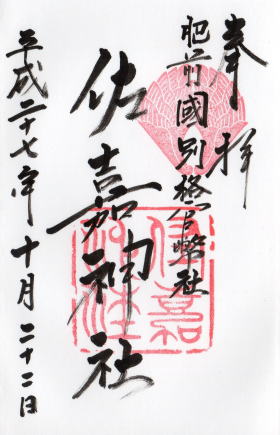 奉拝
肥前國別格官幣社
佐嘉神社
平成二十七年十月二十二日
佐嘉
神社